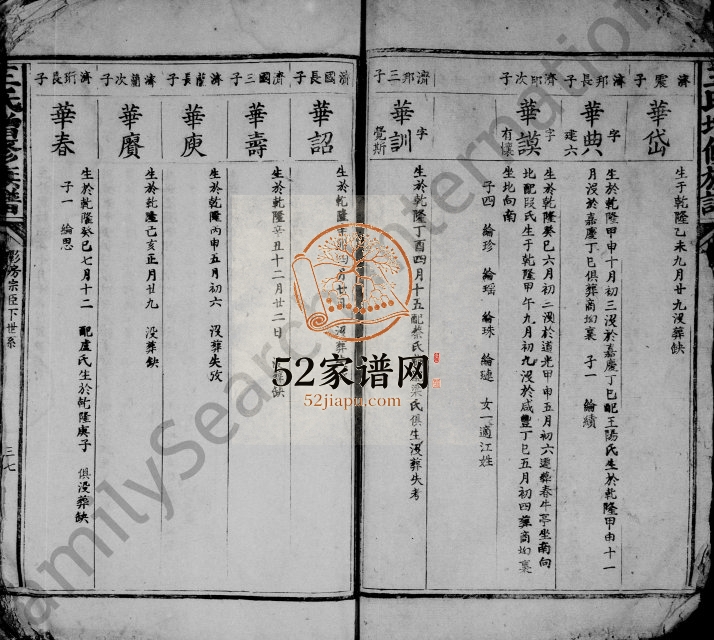 王氏增修族譜
濟震子
華岱
生于乾隆乙未九月廿九没葬缺
濟邦長子
華典
字
建六
生於乾隆甲申十月初三没於嘉慶丁巳配王陽氏生於乾隆甲申十一
月没於嘉慶丁巳俱葬商坳裏 子一 綸績
濟邦次子
華謨
字
有懷
生於乾隆癸巳六月初二没於道光甲申五月初六遷葬春牛亭坐南向
北配段氏生于乾隆甲午九月初九没於咸豐丁巳五月初四葬商坳裏
坐北向南
子四 綸珍 綸瑶 綸珠 綸璉 女一適江姓
濟邦三子
華訓
字
覺斯
生於乾隆丁酉四月十五配蔡氏
氏俱生没葬失考
濟國長子
華詔
生於乾隆
四月廿
没葬
濟國三子
華壽
生於乾隆辛丑十二月廿二日
葬缺
濟蘭長子
華庚
生於乾隆丙申五月初六 没葬失攷
濟蘭次子
華賡
生於乾隆己亥正月廿九 没葬缺
濟珩長子
華春
生於乾隆癸巳七月十二 配盧氏生於乾隆庚子 俱没葬缺
子一 綸思
王氏增修族譜
彰房宗臣下世系
三七
52家谱网
52jiapu.com
FamilySearch International